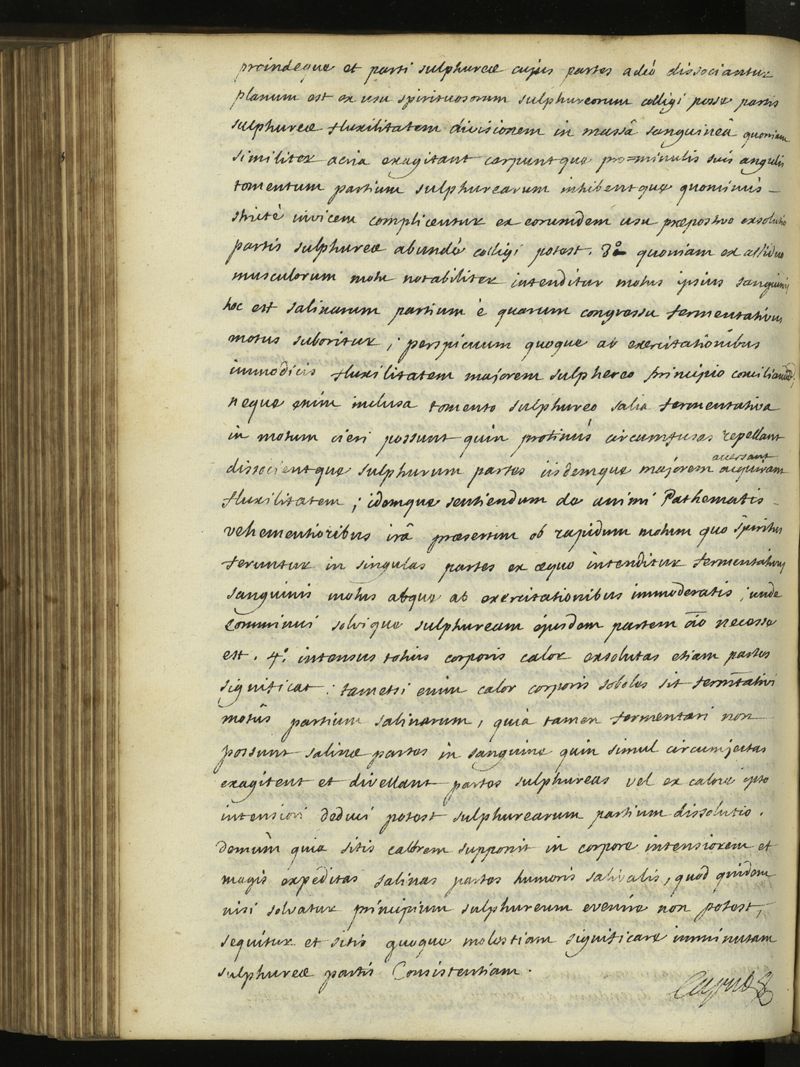 proindeque et parti sulphureæ cujus partes adeò dissociantur
planum est ex usu spirituosorum sulphureorum colligi posse partis
sulphureæ fluxilitatem divisionem in massâ sanguineâ quoniam
similiter acria exagitant carpuntque pro=minulis suis angulis
tomentum partium sulphurearum inhibentque quominùs -
strictè invicem complicentur ex eorumdem usu præpostero exsolutio
partis sulphureæ abundè colligi potest. 3º quoniam ex assiduo
musculorum motu notabiliter intenditur motus ipsius sanguinis
hoc est salinarum partium è quarum congressu fermentativus
motus suboritur, ; perspicuum quoque ab exercitationibus
immodicis fluxilitatem majorem sulphereo principio conciliandam,
neque enim inclusa tomento sulphureo salia fermentativa
in motum cieri possunt quin protinùs circumfusas repellant
dissocientque sulphurum partes iisdemque majorem acquirant
fluxilitatem ; idemque sentiendum de animi Pathematis -
vehementioribus irâ præsertim ob rapidum motum quo spiritus
feruntur in singulas partes ex æquo intenditur fermentativus
sanguinis motus atque ab exercitationibus immoderatis ; unde
comminui solvique sulphuream ejusdem partem oīo necesse
est. 4º. intensus totius corporis calor exsolutas etiam partes
significat : tametsi enim calor corporis soboles sit fermentativi
motûs partium salinarum, quia tamen fermentari non
possunt salinæ partes in sanguine quin simul circumjectas
exagitent et divellant partes sulphureas vel ex calore ipso
intensiori deduci potest sulphurearum partium dissolutio.
demùm quia sitis calorem supponit in corpore intensiorem et
magis expeditas salinas partes humoris salivalis, quod quidem
nisi solvatur principium sulphureum evenire non potest,
sequitur et sitis quoque molestiam significare imminutam
sulphureæ partis Consistentiam.